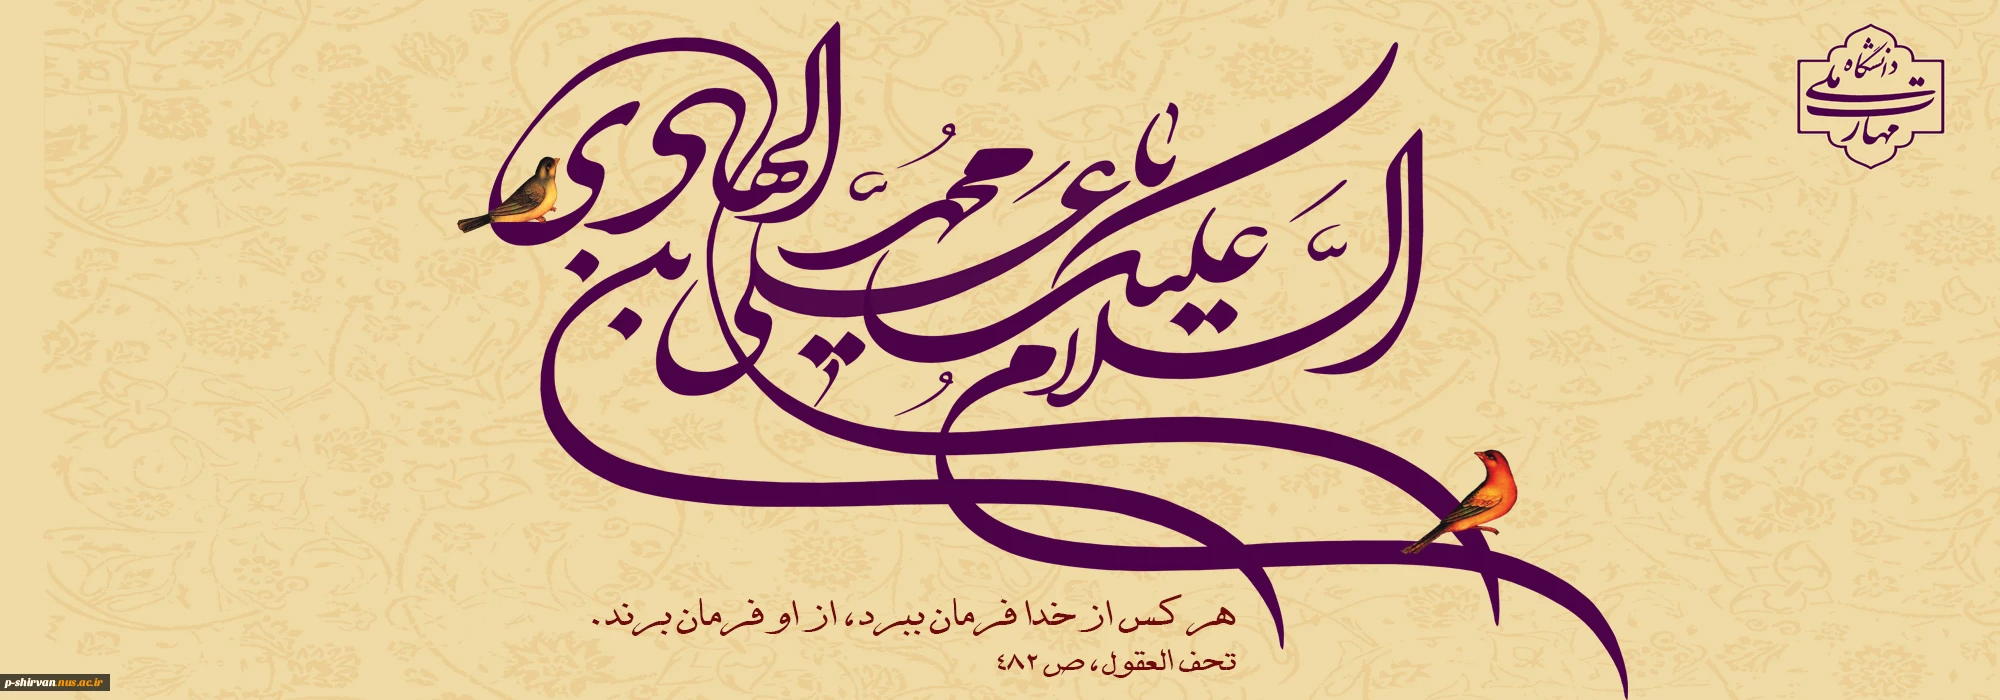 السلام علیک یا علی بن محمد الهادی
دانشگاه ملی مهارت
هر کس از خدا فرمان ببرد، از او فرمان برند.
تحف العقول، ص ٤٨٢
p-shirvan.nus.ac.ir